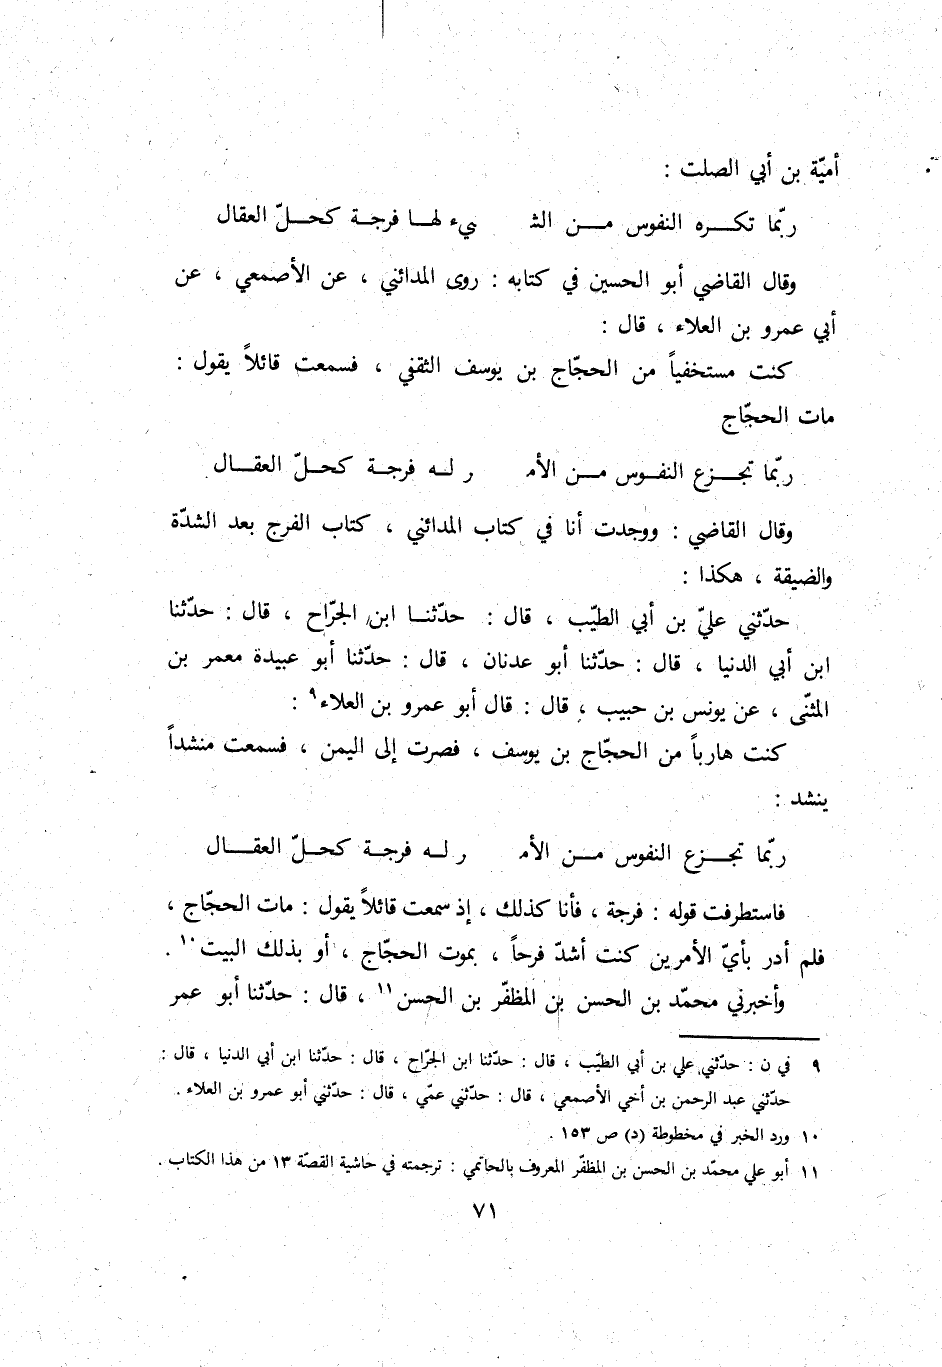 أميّة بن أبي الصلت :
ربّما تكـــره النفوس مـــن الشـ يء لهــا فرجـة كحــلّ العقال
وقال القاضي أبو الحسين في كتابه : روى المدائني ، عن الأصمعي ، عن
أبي عمرو بن العلاء ، قال :
كنت مستخفياً من الحجّاج بن يوسف الثقفي ، فسمعت قائلاً يقول :
مات الحجّاج
ربّما تجـــزع النفــوس مــن الأمـ ر لــه فرجــة كحــلّ العقــال
وقال القاضي : ووجدت أنا في كتاب المدائني ، كتاب الفرج بعد الشدّة
والضيقة ، هكذا :
حدّثني عليّ بن أبي الطيّب ، قال : حدّثنــا ابن الجرّاح ، قال : حدّثنا
ابن أبي الدنيا ، قال : حدّثنا أبو عدنان ، قال : حدّثنا أبو عبيدة معمر بن
المثنّى ، عن يونس بن حبيب ، قال : قال أبو عمرو بن العلاء٩ :
كنت هارباً من الحجّاج بن يوسف ، فصرت إلى اليمن ، فسمعت منشداً
ينشد :
ربّما تجــزع النفوس مــن الأمـ ر لــه فرجــة كحــلّ العقـــال
فاستطرفت قوله : فرجة ، فأنا كذلك ، إذ سمعت قائلاً يقول : مات الحجّاج ،
فلم أدر بأيّ الأمرين كنت أشدّ فرحاً ، بموت الحجّاج ، أو بذلك البيت١٠ .
وأخبرني محمّد بن الحسن بن المظفّر بن الحسن١١ ، قال : حدّثنا أبو عمر
٩ في ن : حدّثني علي بن أبي الطيّب ، قال : حدّثنا ابن الجرّاح ، قال : حدّثنا ابن أبي الدنيا ، قال :
حدّثني عبد الرحمن بن أخي الأصمعي ، قال : حدّثني عمّي ، قال : حدّثني أبو عمرو بن العلاء .
١٠ ورد الخبر في مخطوطة (د) ص ١٥٣ .
١١ أبو علي محمّد بن الحسن بن المظفّر المعروف بالحاتمي : ترجمته في حاشية القصّة ١٣ من هذا الكتاب .
٧١